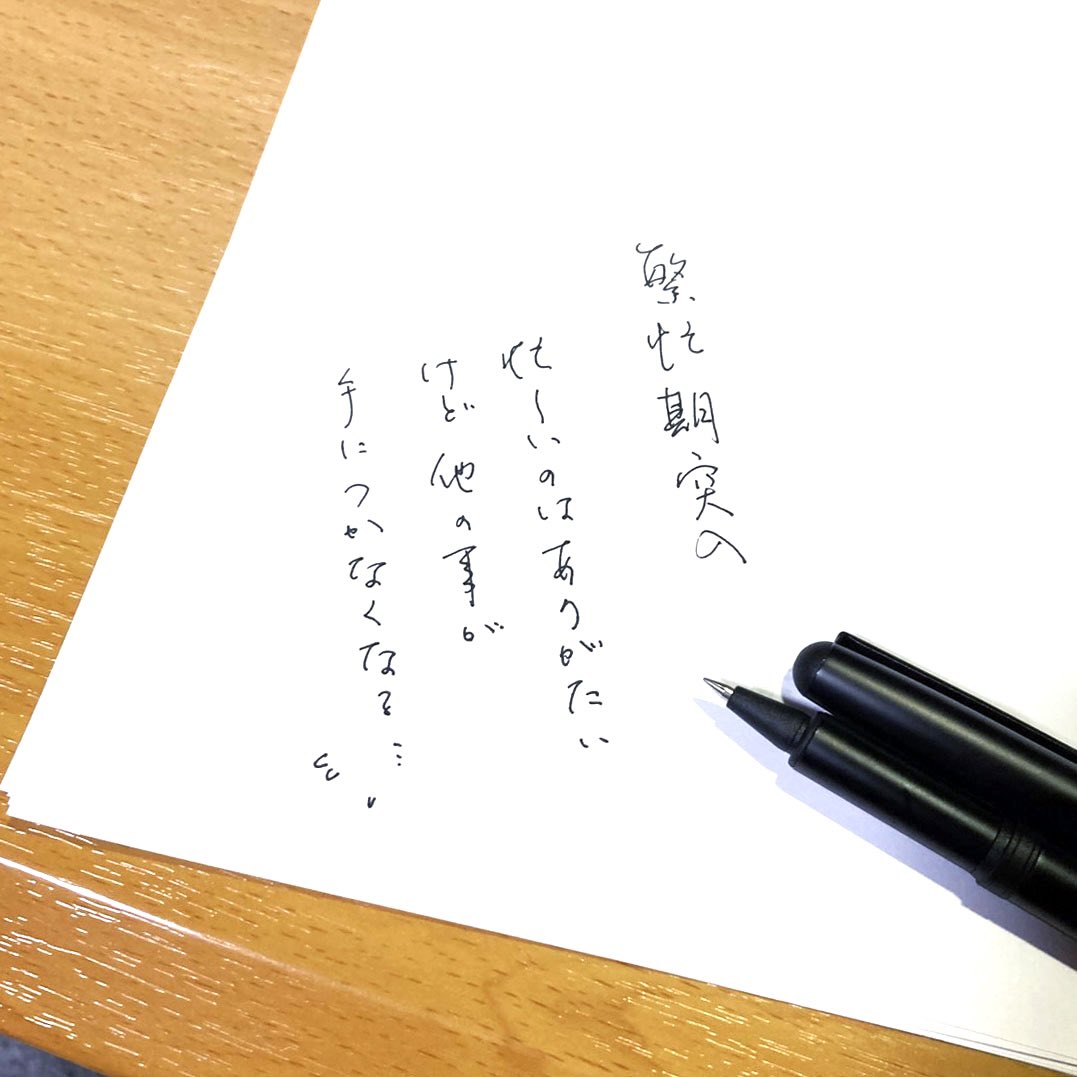 繁忙期突入
忙しいのはありがたい
けど他の事が
手につかなくなる…。